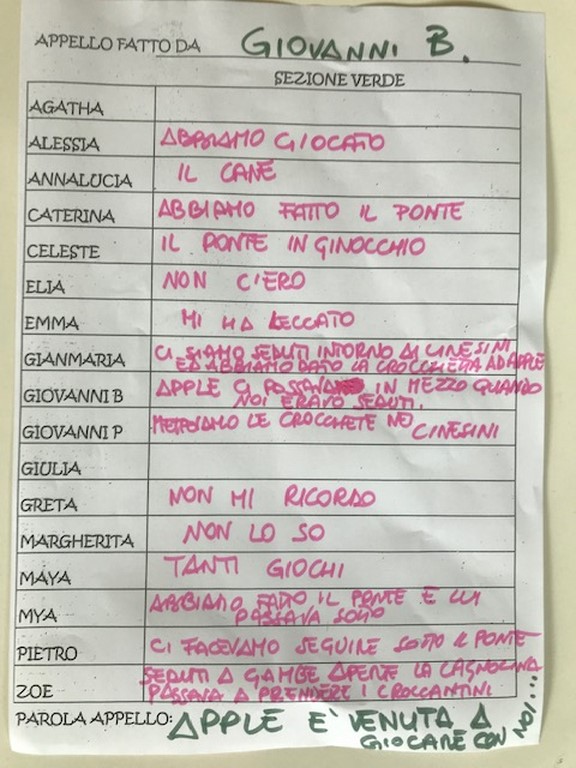 APPELLO FATTO DA GIOVANNI B.
SEZIONE VERDE
AGATHA
ALESSIA ABBIAMO GIOCATO
ANNALUCIA IL CANE
CATERINA ABBIAMO FATTO IL PONTE
CELESTE IL PONTE IN GINOCCHIO
ELIA NON C'ERO
EMMA MI HA LECCATO
GIANMARIA CI SIAMO SEDUTI INTORNO AI CINESINI
ED ABBIAMO DATO LA CROCCHETTA AD APPLE
GIOVANNI B APPLE CI PASSAVA IN MEZZO QUANDO
NOI ERAVO SEDUTI.
GIOVANNI P LE CROCCHETE NEI CINESINI
GIULIA
GRETA NON MI RICORDO
MARGHERITA NON LO SO
MAYA TANTI GIOCHI
MYA ABBIAMO FATTO IL PONTE E LUI
PASSAVA SOTTO
PIETRO CI FACEVAMO SEGUIRE SOTTO IL PONTE
ZOE SEDUTI A GAMBE APERTE LA CAGNOLINA
PASSAVA A PRENDERE I CROCCANTINI
PAROLA APPELLO: APPLE E' VENUTA A
GIOCARE CON NOI...